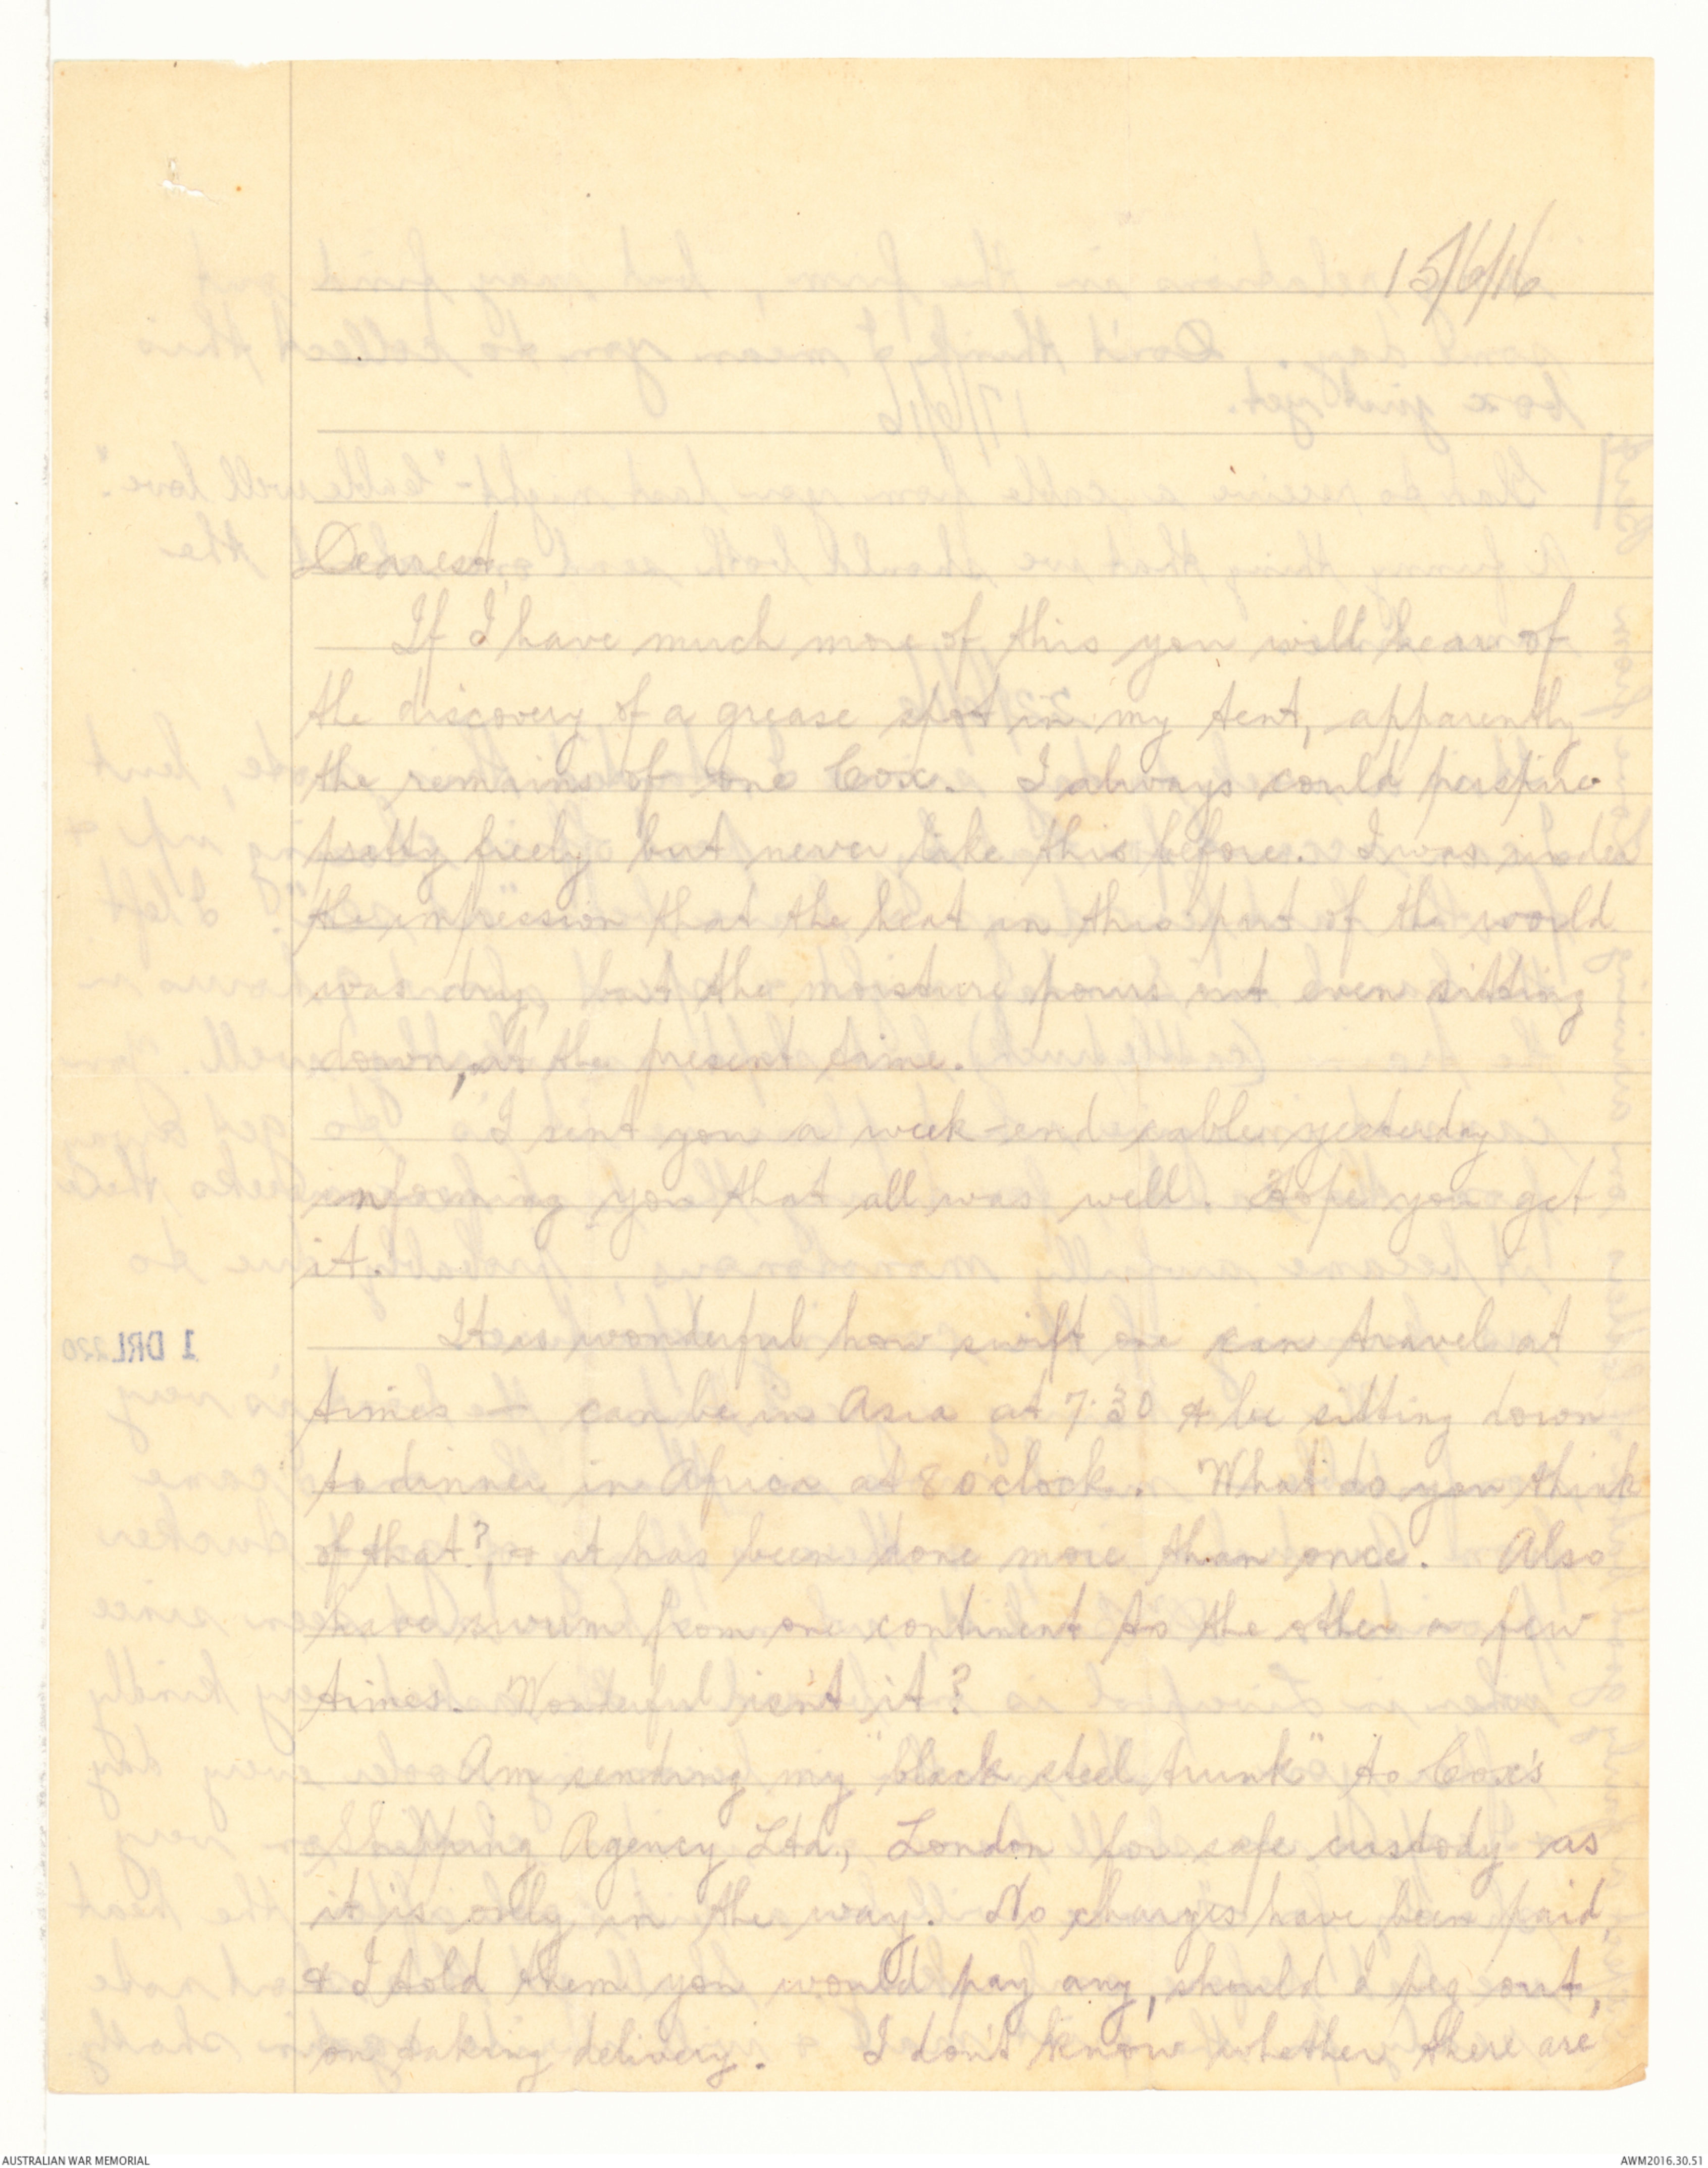 15/6/16
Dearest,
If I have much more of this you will hear of
the discovery of a grease spot in my tent, apparently
the remains of one Cox. I always could perspire
pretty freely but never like this before. I was under
the impression that the heat in this part of the world
was dry, but the moisture pours out even sitting
down, at the present time.
I sent you a week-end cable yesterday
informing you that all was well. Hope you get
it.
It is wonderful how swift one can travel at
times — can be in Asia at 7.30 & be sitting down
to dinner in Africa at 8 o'clock. What do you think
of that?, & it has been done more than once. Also
have swum from one continent to the other a few
times. Wonderful isn't it?
Am sending my "black steel trunk" to Cox's
Shipping Agency Ltd., London for safe custody as
it is only in the way. No charges have been paid,
& I told them you would pay any, should I peg out,
on taking delivery. I don't know whether there are
1 DRL 220
AUSTRALIAN WAR MEMORIAL
AWM2016.30.51